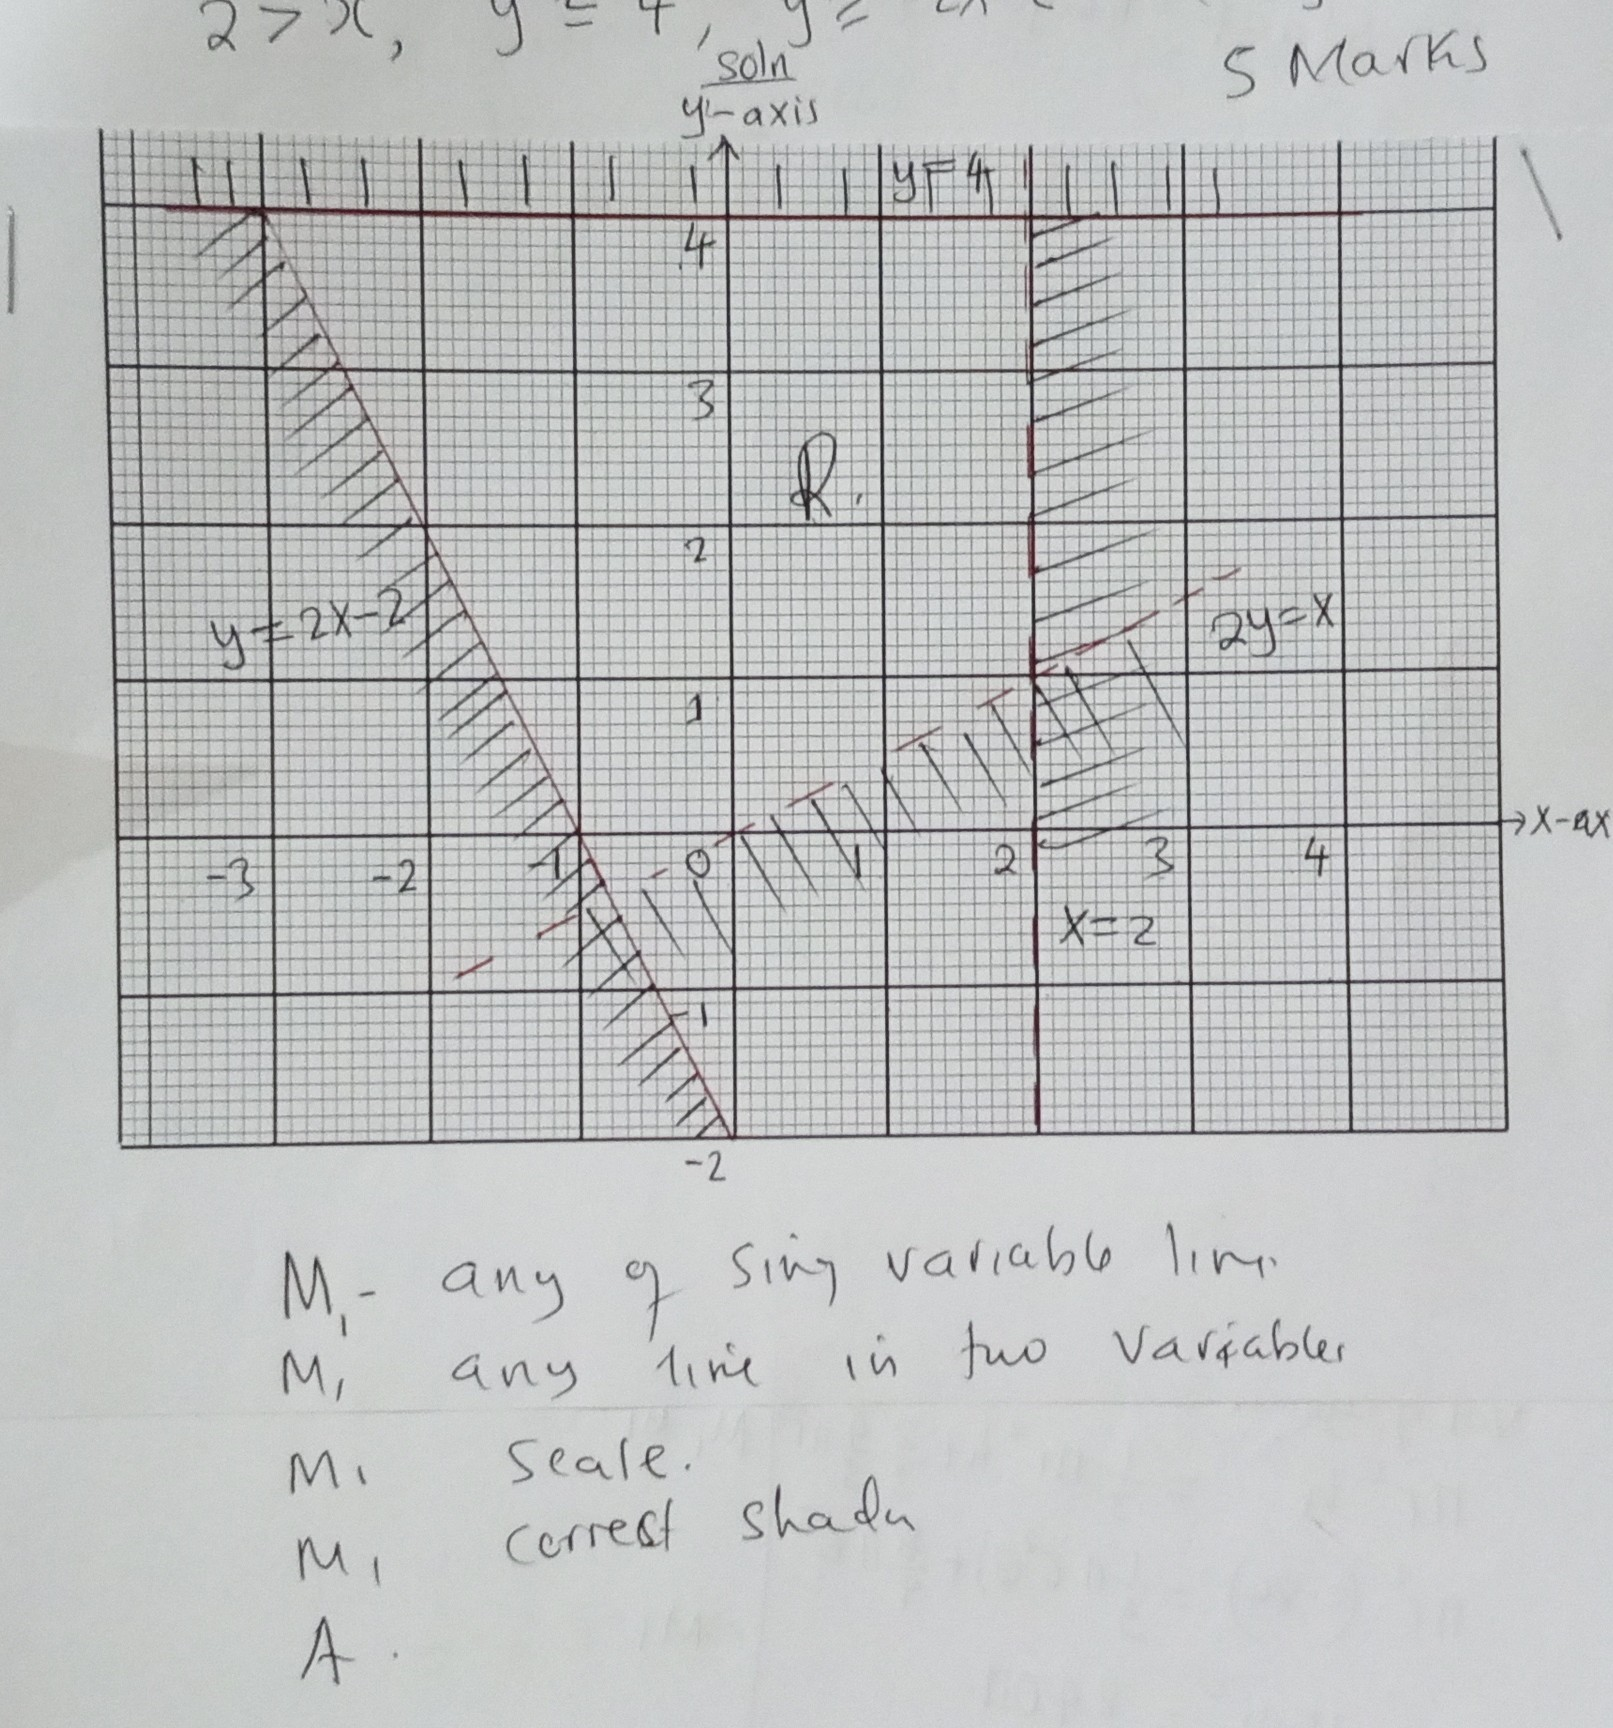 2 > x, y ≤ 4, y ≥
soln
5 Marks
y-axis
y = 4
4
3
R.
2
y = 2x-2
2y=x
1
x-ax
-3 -2 -1 0 1 2 3 4
x=2
-1
-2
M1 - any of sing variable line
M1 any line in two variables
M1 scale.
M1 correct
A.